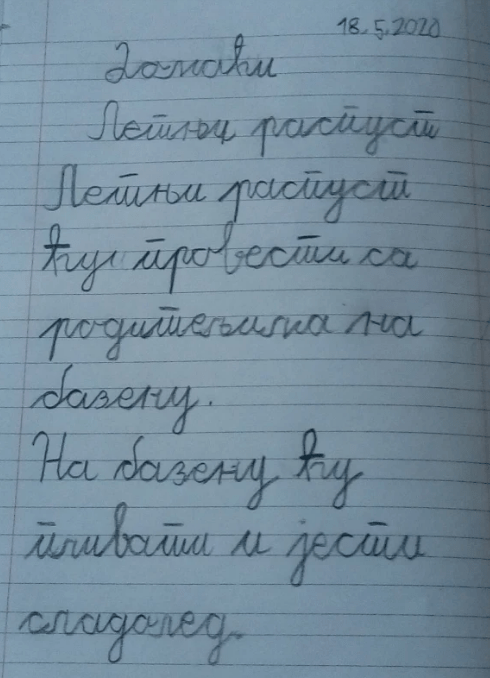 18.5.2020
Домаћи
Летњи распуст
Летњи распуст
ћу провести са
родитељима на
базену.
На базену ћу
пливати и јести
сладолед.